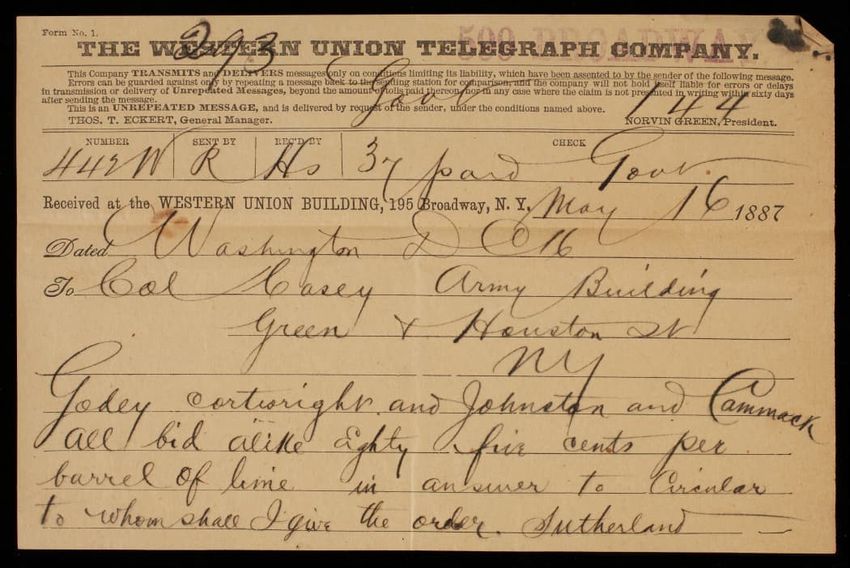 Form No. 1.
293
599 BROADWAY
THE WESTERN UNION TELEGRAPH COMPANY.
This Company TRANSMITS and DELIVERS messages only on conditions limiting its liability, which have been assented to by the sender of the following message.
Errors can be guarded against only by repeating a message back to the sending station for comparison, and the company will not hold itself liable for errors or delays
in transmission or delivery of Unrepeated Messages, beyond the amount of tolls paid thereon, nor in any case where the claim is not presented in writing within sixty days
after sending the message.
This is an UNREPEATED MESSAGE, and is delivered by request of the sender, under the conditions named above.
Govt 44
THOS. T. ECKERT, General Manager. NORVIN GREEN, President.
NUMBER SENT BY REC'D BY CHECK
R Hs 37 paid Govt
Received at the WESTERN UNION BUILDING, 195 Broadway, N. Y. May 16 1887
Dated Washington D C 16
To Col Casey Army Building
Green & Houston St
NY
Godey cortwright and Johnston and Cammack
all bid alike Eighty five cents per
barrel of lime in answer to Circular
to whom shall I give the order. Sutherland